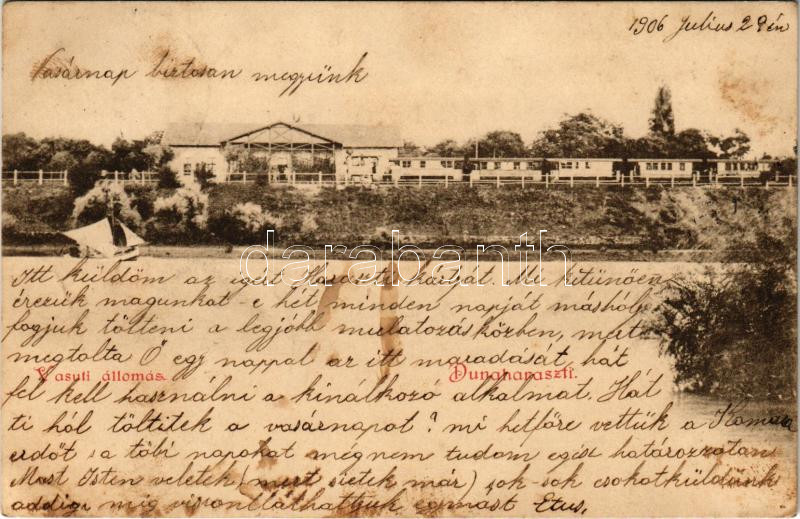 1906 Julius 29 én
Vasárnap biztosan megyünk
darabanth
Itt küldöm az igért Haraszti kártyát. Mi kitünően
érezük magunkat e hét minden napját máshol
fogjuk tölteni a legjobb mulatozás közben, mert
megtolta Ő egy nappal az itt maradását, hát
Vasuti állomás. Dunaharaszti.
fel kell használni a kinálkozó alkalmat. Hát
ti hól töltitek a vasárnapot? mi hetfőre vettük a Kamara
erdőt s a többi napokat még nem tudom egész határozottan
Most Isten veletek (mert sietek már) sok-sok csokot küldünk
addig mig viszontláthatjuk egymást Etus.